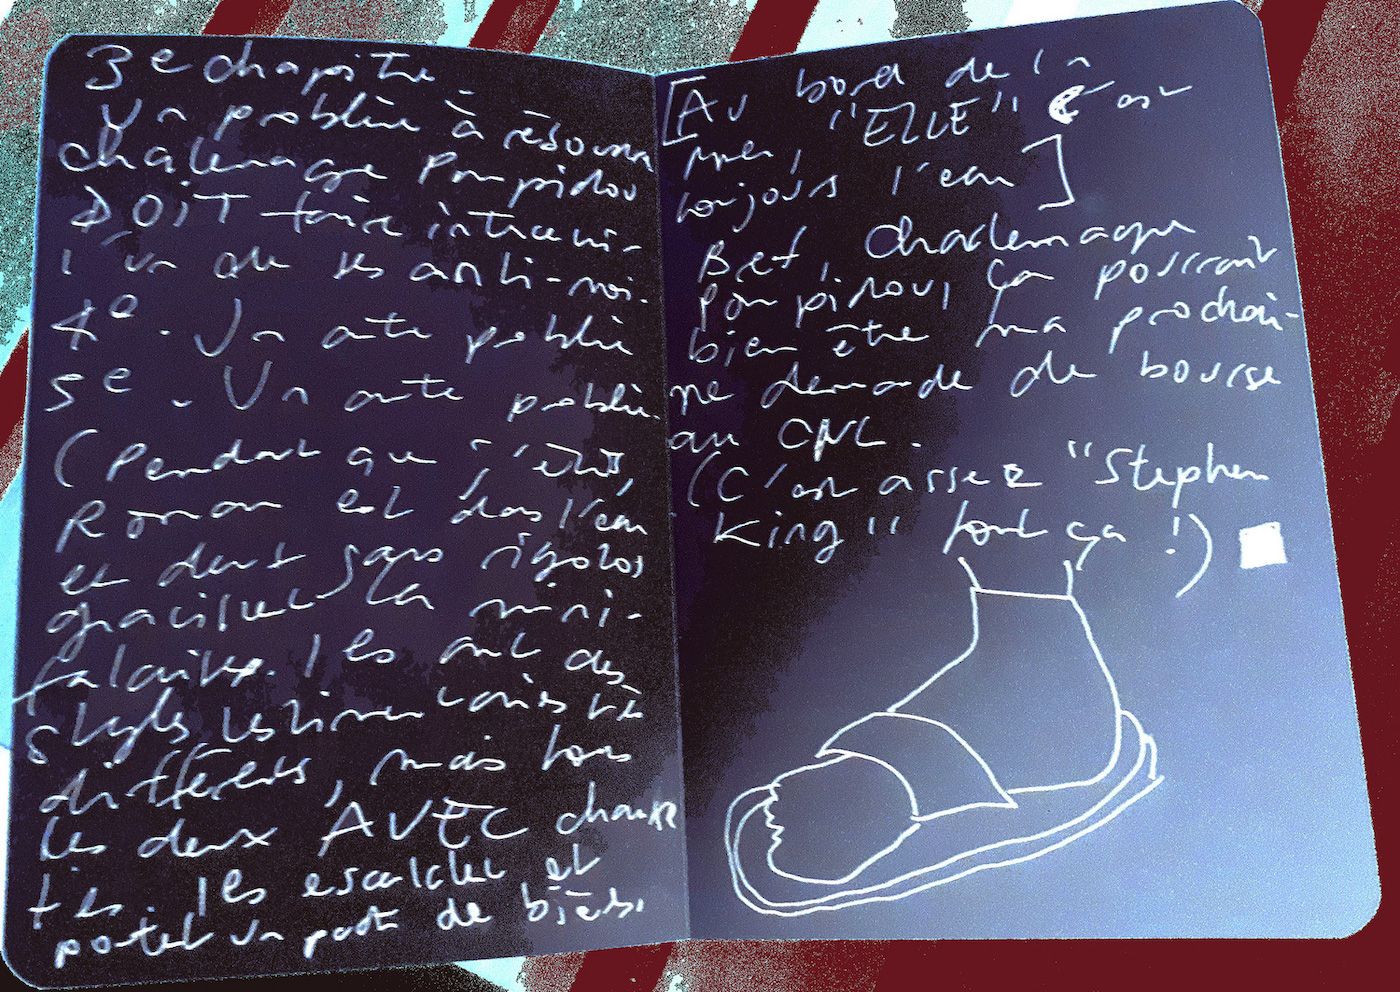 3e chapitre.
Un problème à résoudre
Charlemagne Pompidou
DOIT faire interveni-
l'un de ses anti-moi.
4e. Un autre problème
5e. Un autre problème
(Pendant que j'écris,
Ronan est dans l'eau
et deux gars rigolos
la mini-
falaise. Ils ont des
styles vestimentaires très
différents, mais tous
les deux AVEC chausse
tes. Ils escaladent et
portent un pack de bières.
[Au bord de la
mer, "ELLE" c'est
toujours l'eau]
Bref, Charlemagne
Pompidou, ça pourrait
bien être ma prochai-
ne demande de bourse
au CNL.
(C'est assez "Stephen
King" tout ça !)